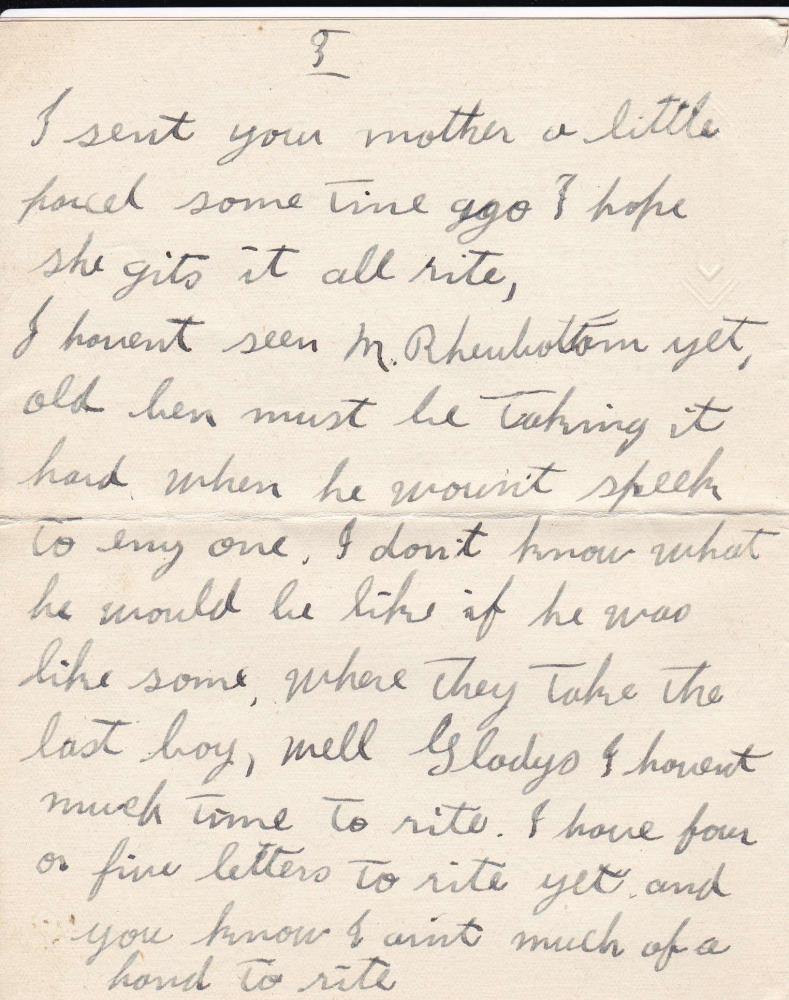 3
I sent your mother a little
parcel some time ago I hope
she gits it all rite,
I havent seen M. Rheubottom yet,
old ben must be taking it
hard when he wount speek
to eny one. I don't know what
he would be like if he was
like some, where they take the
last boy, well Gladys I havent
much time to rite. I have four
or five letters to rite yet and
you know I aint much of a
hand to rite